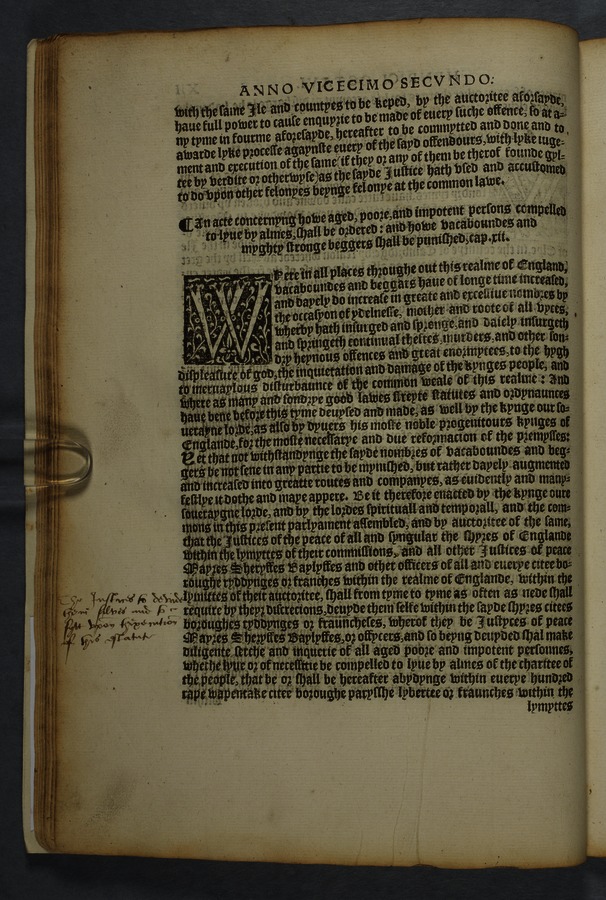 ANNO VICECIMO SECVNDO.
with the same Ile and countyes to be keped, by the auctoritee aforsayde,
haue full power to cause enquyrie to be made of euery suche offence, so at a-
ny tyme in fourme aforesayde, hereafter to be commytted and done and to
awarde lyke processe agaynste euery of the sayd offendours, with lyke iuge-
ment and execution of the same (if they or any of them be therof founde gyl-
tee by verdite or otherwyse) as the sayde Justice hath vsed and accustomed
to do vpon other felonyes beynge felonye at the common lawe.
¶ An acte concernyng howe aged, poore, and impotent persons compelled
to lyue by almes, shall be ordered: and howe vacaboundes and
myghty stronge beggers shall be punished, cap. xii.
Where in all places throughe out this realme of England,
vacaboundes and beggars haue of longe time increased,
and dayely do increase in greate and excessiue nombres by
the occasyon of ydelnesse, mother and roote of all vyces,
wherby hath insurged and spronge, and daiely insurgeth
and springeth continual theftes, murders, and other son-
dry heynous offences and great enormytees, to the hygh
displeasure of god, the inquietation and damage of the kynges people, and
to meruaylous disturbaunce of the common weale of this realme: And
where as many and sondrye good lawes streyte statutes and ordynaunces
haue bene before this tyme deuysed and made, as well by the kynge our so-
uerayne lorde, as also by dyuers his moste noble progenitours kynges of
Englande, for the moste necessarye and due reformacion of the premysses:
Yet that not withstandynge the sayde nombres of vacaboundes and beg-
gers be not sene in any partie to be mynished, but rather dayely augmented
and increased into greatte routes and companyes, as euidently and many-
festlye it dothe and maye appere. Be it therefore enacted by the kynge oure
soueraygne lorde, and by the lordes spirituall and temporall, and the com-
mons in this present parlyament assembled, and by auctoritee of the same,
that the Justices of the peace of all and syngular the shyres of Englande
within the lymyttes of their commissions, and all other Justices of peace
Mayres Sheryffes Baylyffes and other officers of all and euerye citee bo-
roughe ryddynges or franches within the realme of Englande, within the
lymittes of their auctoritee, shall from tyme to tyme as often as nede shall
require by theyr discrecions, deuyde them selfe within the sayde shyres citees
boroughes ryddynges or fraunchelses, wherof they be Justyces of peace
Mayres Sheryffes Baylyffes, or offycers, and so beyng deuyded shal make
diligente serche and inquerie of all aged poore and impotent personnes,
whiche lyue or of necessitie be compelled to lyue by almes of the charitee of
the people, that be or shall be hereafter abydynge within euerye hundred
rape wapentake citee boroughe parysshe lybertee or fraunches within the
lymyttes
The Justices to deuide
them selves and to
upon execution
of this statute